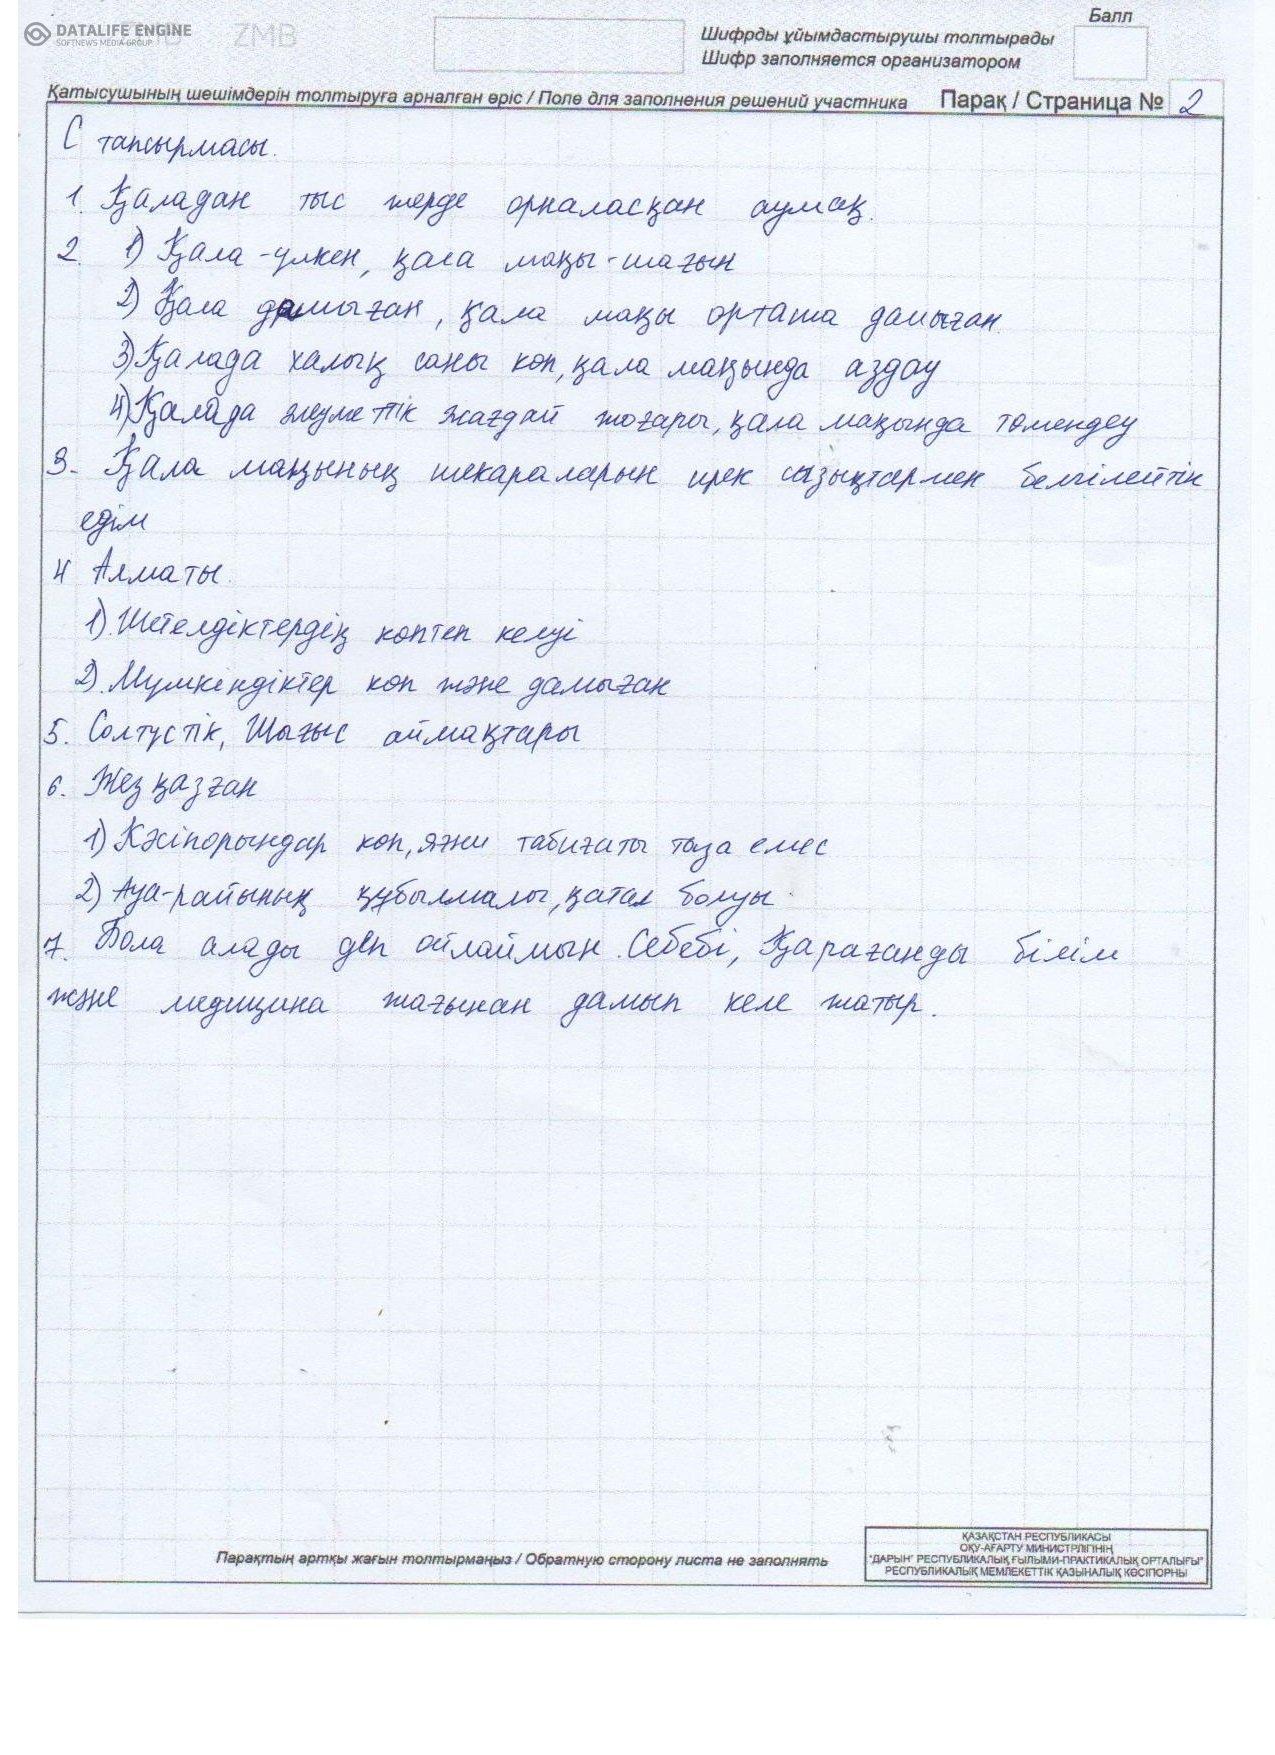 DATALIFE ENGINE
SOFTNEWS MEDIA GROUP
ZMB
Балл
Шифрды ұйымдастырушы толтырады
Шифр заполняется организатором
Қатысушының шешімдерін толтыруға арналған өріс / Поле для заполнения решений участника Парақ / Страница № 2
С тапсырмасы.
1. Қаладан тыс жерде орналасқан аумақ.
2. 1) Қала - үлкен, қала маңы - шағын
2) Қала дамыған, қала маңы орташа дамыған.
3) Қалада халық саны көп, қала маңында аздау
4) Қалада әлеуметтік жағдай жоғары, қала маңында төмендеу
3. Қала маңының шекараларын ирек сызықтармен белгілейтін
едім
4 Алматы.
1). Шетелдіктердің көптеп келуі
2). Мүмкіндіктер көп және дамыған
5. Солтүстік, Шығыс аймақтары
6. Жезқазған
1) Кәсіпорындар көп, яғни табиғаты таза емес
2) Ауа-райының құбылмалы, қатал болуы.
7. Бола алады деп ойлаймын. Себебі, Қарағанды білім
және медицина жағынан дамып келе жатыр.
Парақтың артқы жағын толтырмаңыз / Обратную сторону листа не заполнять
ҚАЗАҚСТАН РЕСПУБЛИКАСЫ
ОҚУ-АҒАРТУ МИНИСТРЛІГІНІҢ
"ДАРЫН" РЕСПУБЛИКАЛЫҚ ҒЫЛЫМИ-ПРАКТИКАЛЫҚ ОРТАЛЫҒЫ"
РЕСПУБЛИКАЛЫҚ МЕМЛЕКЕТТІК ҚАЗЫНАЛЫҚ КӘСІПОРНЫ